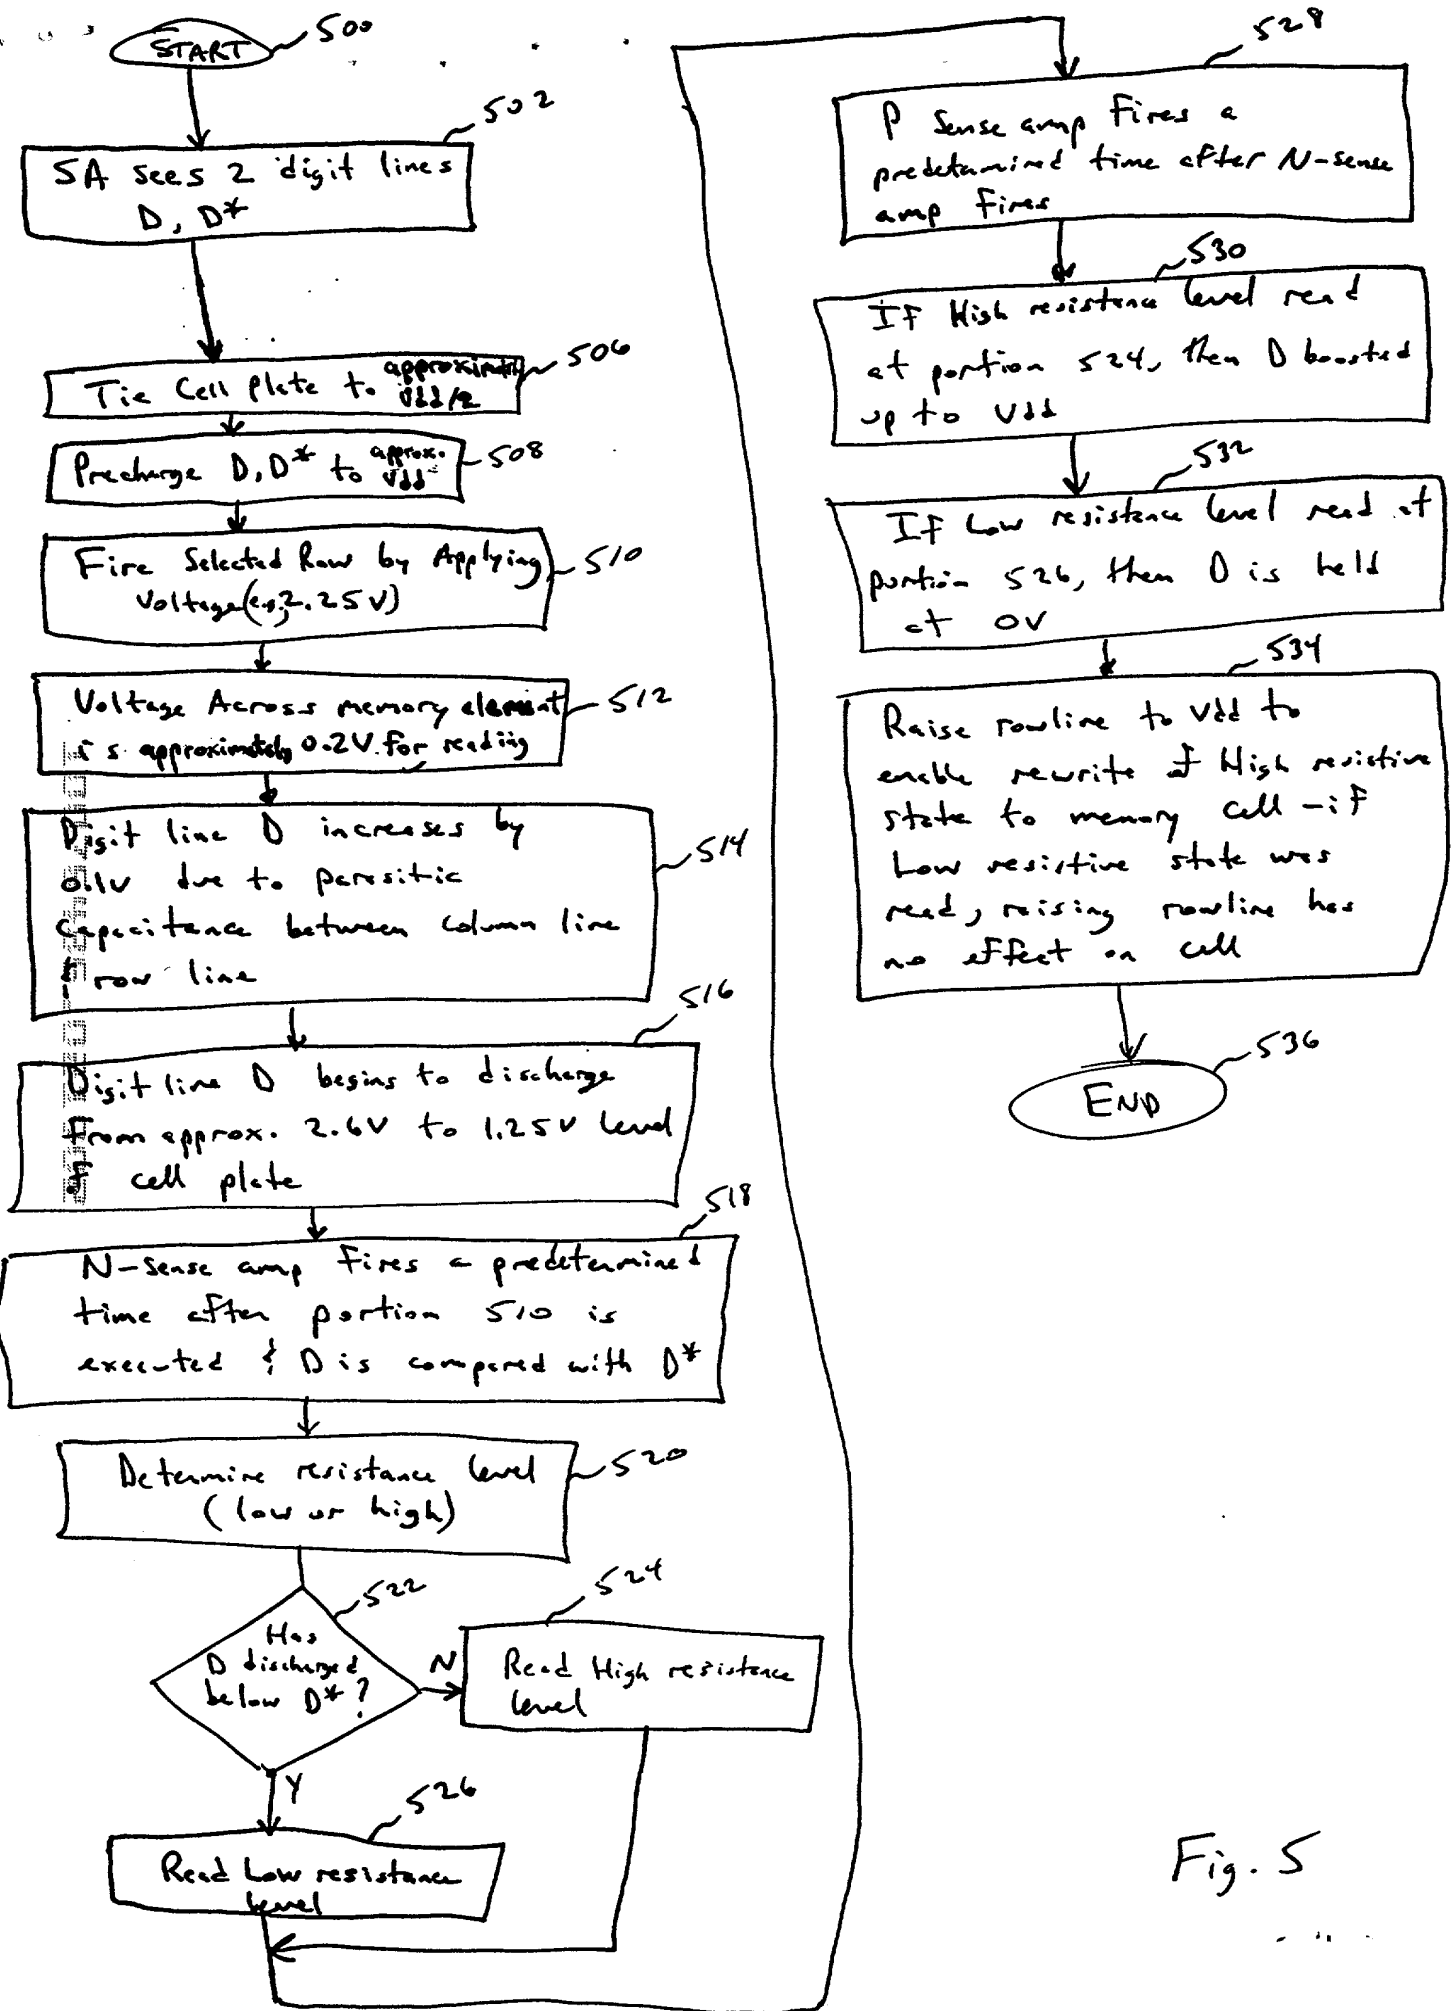 START
500
502
SA sees 2 digit lines
D, D*
506
Tie Cell Plate to approximately
Vdd/2
508
Precharge D, D* to approx.
Vdd
510
Fire Selected Row by Applying
Voltage (e.g., 2.25V)
512
Voltage Across memory element
is approximately 0.2V for reading
514
Digit line D increases by
0.1V due to parasitic
capacitance between column line
& row line
516
Digit line D begins to discharge
from approx. 2.6V to 1.25V level
of cell plate
518
N-sense amp fires a predetermined
time after portion 510 is
executed & D is compared with D*
520
Determine resistance level
(low or high)
522
Has
D discharged
below D*?
N
524
Read High resistance
level
Y
526
Read Low resistance
level
528
P sense amp fires a
predetermined time after N-sense
amp fires
530
If High resistance level read
at portion 524, then D boosted
up to Vdd
532
If Low resistance level read at
portion 526, then D is held
at 0V
534
Raise rowline to Vdd to
enable rewrite of High resistive
state to memory cell - if
Low resistive state was
read, raising rowline has
no effect on cell
536
END
Fig. 5